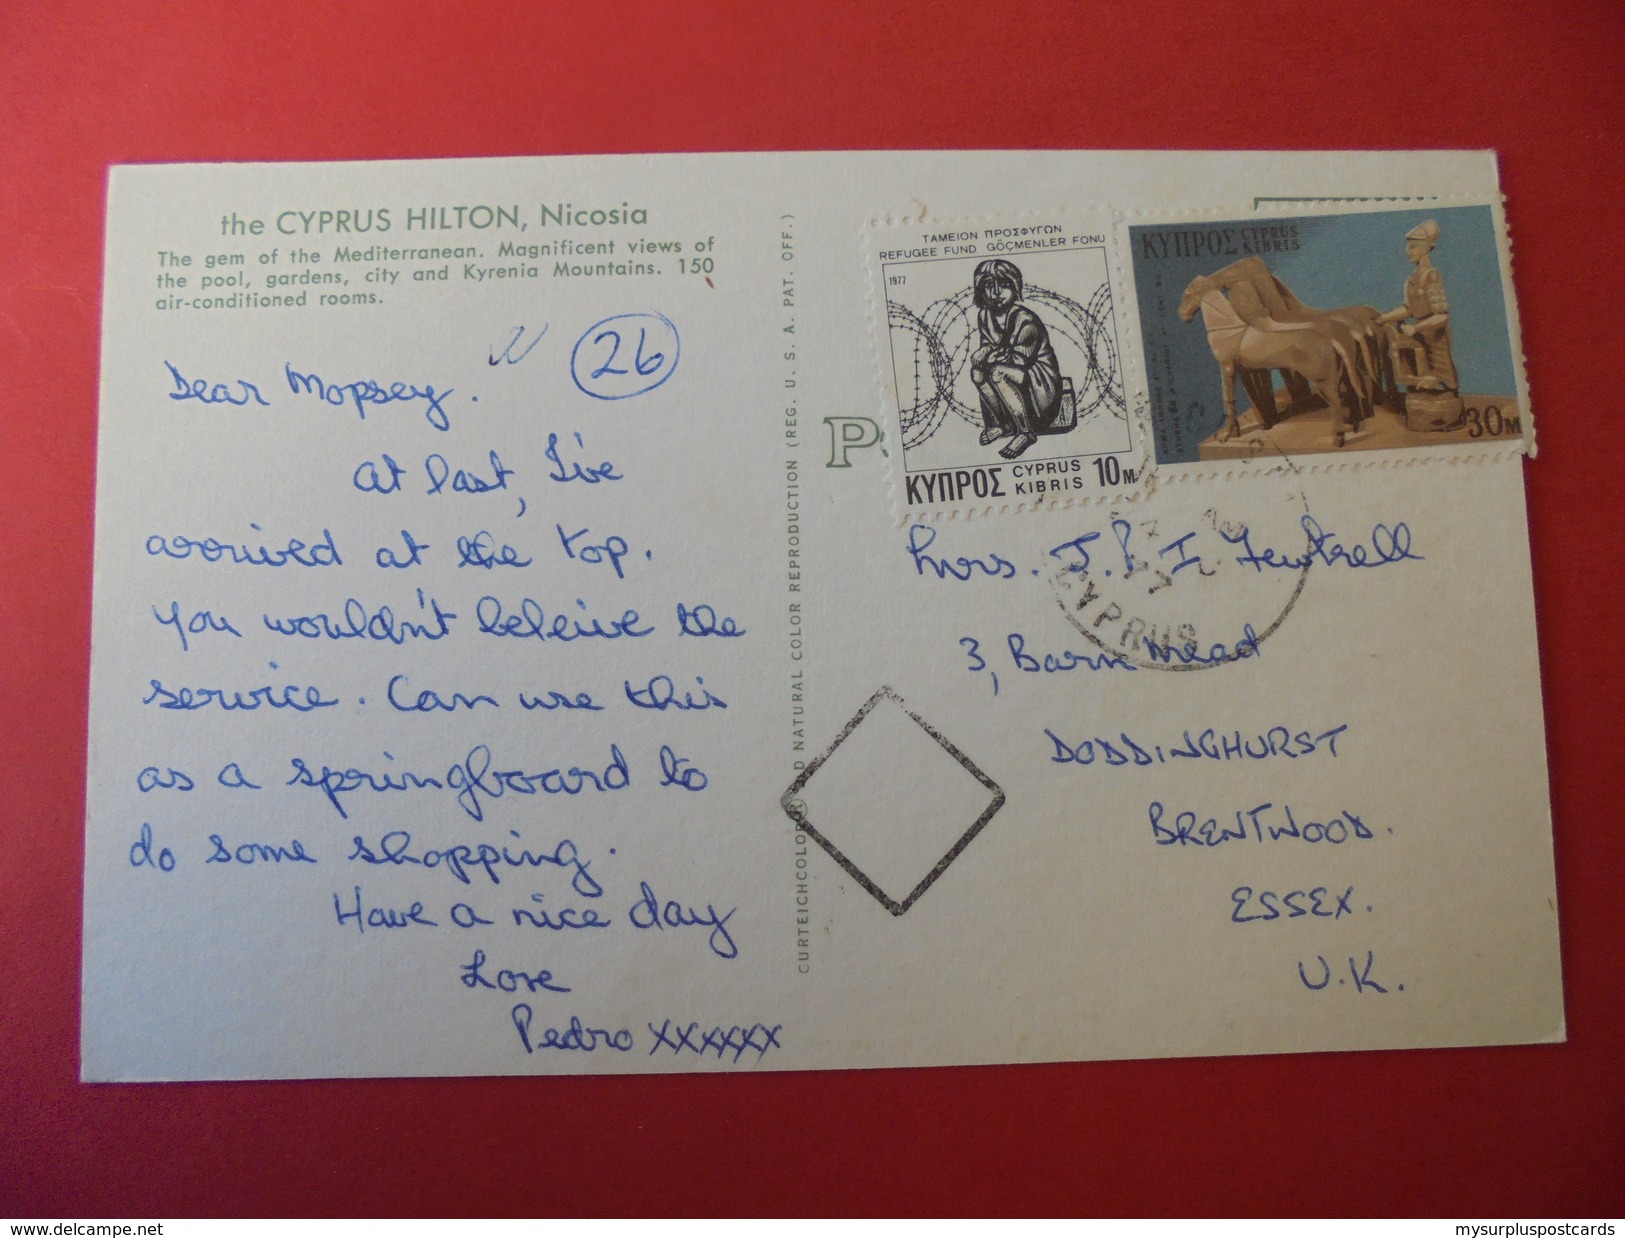 the CYPRUS HILTON, Nicosia
The gem of the Mediterranean. Magnificent views of
the pool, gardens, city and Kyrenia Mountains. 150
air-conditioned rooms.
26
Dear Mopsey.
At last, I've
arrived at the top.
You wouldn't beleive the
service. Can use this
as a springboard to
do some shopping.
Have a nice day
Love
Pedro xxxxxx
CURTEICHCOLOR® 3D NATURAL COLOR REPRODUCTION (REG. U. S. A. PAT. OFF.)
P
ΤΑΜΕΙΟΝ ΠΡΟΣΦΥΓΩΝ
REFUGEE FUND GÖÇMENLER FONU
1977
ΚΥΠΡΟΣ CYPRUS KIBRIS 10M
ΚΥΠΡΟΣ CYPRUS KIBRIS
30M
CYPRUS
Mrs. J. Fewtrell
3, Barn Mead
DODDINGHURST
BRENTWOOD.
ESSEX.
U.K.
www.delcampe.net
mysurpluspostcards